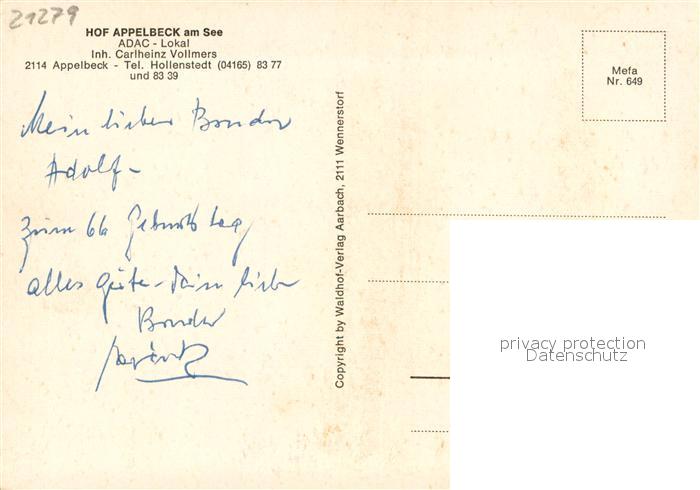 21279
HOF APPELBECK am See
ADAC - Lokal
Inh. Carlheinz Vollmers
2114 Appelbeck - Tel. Hollenstedt (04165) 83 77
und 83 39
Mein lieber Bruder
Adolf -
zum 66 Geburtstag
alles Gute - Dein lieber
Bruder
Copyright by Waldhof-Verlag Aarbach, 2111 Wennerstorf
Mefa
Nr. 649
privacy protection
Datenschutz